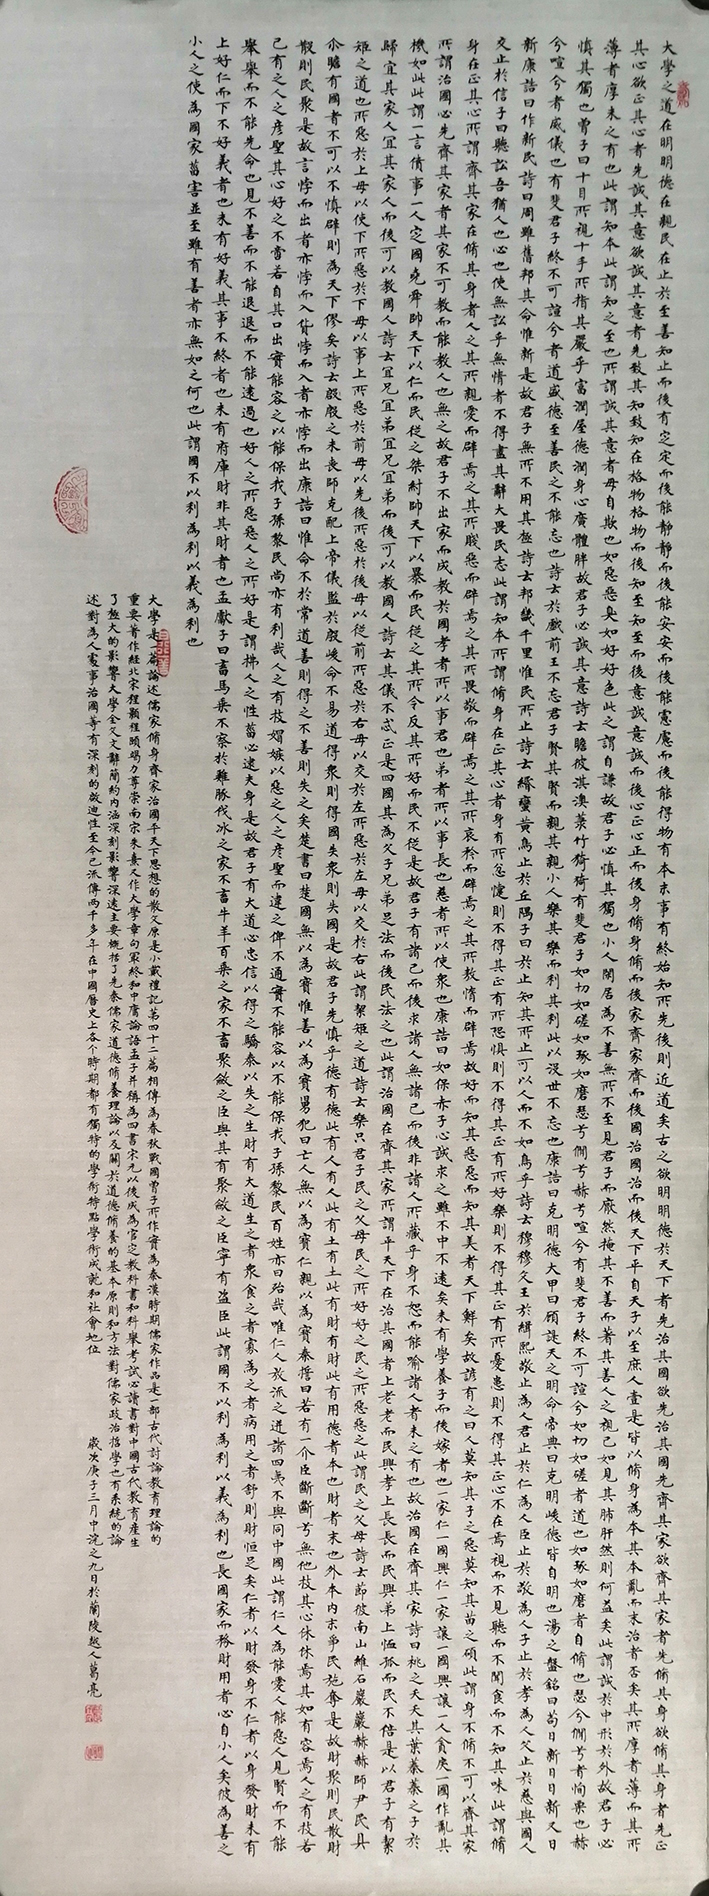 大學之道在明明德在親民在止於至善知止而後有定定而後能靜靜而後能安安而後能慮慮而後能得物有本末事有終始知所先後則近道矣古之欲明明德於天下者先治其國欲先治其國先齊其家欲齊其家者先脩其身欲脩其身者先正
其心欲正其心者先誠其意欲誠其意者先致其知致知在格物格物而後知至知至而後意誠意誠而後心正心正而後身脩身脩而後家齊家齊而後國治國治而後天下平自天子以至庶人壹是皆以脩身為本其本亂而末治者否矣其所厚者薄而其所
薄者厚未之有也此謂知本此謂知之至也所謂誠其意者毋自欺也如惡惡臭如好好色此之謂自謙故君子必慎其獨也小人閑居為不善無所不至見君子而厭然掩其不善而著其善人之視己如見其肺肝然則何益矣此謂誠於中形於外故君子必
慎其獨也曾子曰十目所視十手所指其嚴乎富潤屋德潤身心廣體胖故君子必誠其意詩云瞻彼淇澳菉竹猗猗有斐君子如切如磋如琢如磨瑟兮僩兮赫兮喧兮有斐君子終不可諠兮如切如磋者道也如琢如磨者自脩也瑟兮僩兮者恂栗也赫
兮喧兮者威儀也有斐君子終不可諠兮者道盛德至善民之不能忘也詩云於戲前王不忘君子賢其賢而親其親小人樂其樂而利其利此以沒世不忘也康誥曰克明德大甲曰顧諟天之明命帝典曰克明峻德皆自明也湯之盤銘曰苟日新日日新又日
新康誥曰作新民詩曰周雖舊邦其命惟新是故君子無所不用其極詩云邦畿千里惟民所止詩云緡蠻黃鳥止於丘隅子曰於止知其所止可以人而不如鳥乎詩云穆穆文王於緝熙敬止為人君止於仁為人臣止於敬為人子止於孝為人父止於慈與國人
交止於信子曰聽訟吾猶人也必也使無訟乎無情者不得盡其辭大畏民志此謂知本所謂脩身在正其心者身有所忿懥則不得其正有所恐惧則不得其正有所好樂則不得其正有所憂患則不得其正心不在焉視而不見聽而不聞食而不知其味此謂脩
身在正其心所謂齊其家在脩其身者人之其所親愛而辟焉之其所賤惡而辟焉之其所畏敬而辟焉之其所哀矜而辟焉之其所敖惰而辟焉故好而知其惡惡而知其美者天下鮮矣故諺有之曰人莫知其子之惡莫知其苗之碩此謂身不脩不可以齊其家
所謂治國必先齊其家者其家不可教而能教人也無之故君子不出家而成教於國孝者所以事君也弟者所以事長也慈者所以使衆也康誥曰如保赤子心誠求之雖不中不遠矣未有學養子而後嫁者也一家仁一國興仁一家讓一國興讓一人貪戾一國作亂其
機如此此謂一言僨事一人定國堯舜帥天下以仁而民從之桀紂帥天下以暴而民從之其所令反其所好而民不從是故君子有諸己而後求諸人無諸己而後非諸人所藏乎身不恕而能喻諸人者未之有也故治國在齊其家詩曰桃之夭夭其葉蓁蓁之子于
歸宜其家人宜其家人而後可以教國人詩云宜兄宜弟宜兄宜弟而後可以教國人詩云其儀不忒正是四國其為父子兄弟足法而後民法之也此謂治國在齊其家所謂平天下在治其國者上老老而民興孝上長長而民興弟上恤孤而民不倍是以君子有絜
矩之道也所惡於上毋以使下所惡於下毋以事上所惡於前毋以先後所惡於後毋以從前所惡於右毋以交於左所惡於左毋以交於右此謂絜矩之道詩云樂只君子民之父母民之所好好之民之所惡惡之此謂民之父母詩云節彼南山維石巖巖赫赫師尹民具
尒瞻有國者不可以不慎辟則為天下僇矣詩云殷之未喪師克配上帝儀監於殷峻命不易道得衆則得國失衆則失國是故君子先慎乎德有德此有人有人此有土有土此有財有財此有用德者本也財者末也外本內末爭民施奪是故財聚則民散財
散則民聚是故言悖而出者亦悖而入貨悖而入者亦悖而出康誥曰惟命不於常道善則得之不善則失之矣楚書曰楚國無以為寶惟善以為寶舅犯曰亡人無以為寶仁親以為寶秦誓曰若有一介臣斷斷兮無他技其心休休焉其如有容焉人之有技若
己有之人之彥聖其心好之不啻若自其口出實能容之以能保我子孫黎民尚亦有利哉人之有技媢嫉以惡之人之彥聖而違之俾不通實不能容以不能保我子孫黎民百姓亦曰殆哉唯仁人放流之迸諸四夷不與同中國此謂仁人為能愛人能惡人見賢而不能
舉舉而不能先命也見不善而不能退退而不能遠過也好人之所惡惡人之所好是謂拂人之性菑必逮夫身是故君子有大道必忠信以得之驕泰以失之生財有大道生之者衆食之者寡為之者病用之者舒則財恒足矣仁者以財發身不仁者以身發財未有
上好仁而下不好義者也未有好義其事不終者也未有府庫財非其財者也孟獻子曰畜馬乘不察於雞豚伐冰之家不畜牛羊百乘之家不畜聚斂之臣與其有聚斂之臣寧有盜臣此謂國不以利為利以義為利也長國家而務財用者必自小人矣彼為善之
小人之使為國家菑害並至雖有善者亦無如之何也此謂國不以利為利以義為利也
大學是一篇論述儒家脩身齊家治國平天下思想的散文原是小戴禮記第四十二篇相傳為春秋戰國曾子所作實為秦漢時期儒家作品是一部古代討論教育理論的
重要著作經北宋程顥程頤竭力尊崇南宋朱熹又作大學章句㝡終和中庸論語孟子并稱為四書宋元以後成為官定教科書和科舉考試必讀書對中國古代教育產生
了極大的影響大學全文文辭簡約內涵深刻影響深遠主要概括了先秦儒家道德脩養理論以及關於道德脩養的基本原則和方法對儒家政治哲學也有系統的論
述對為人處事治國等有深刻的啟迪性至今已流傳兩千多年在中國曆史上各個時期都有獨特的學術特點學術成就和社會地位
歲次庚子三月中浣之九日於蘭陵越人葛亮